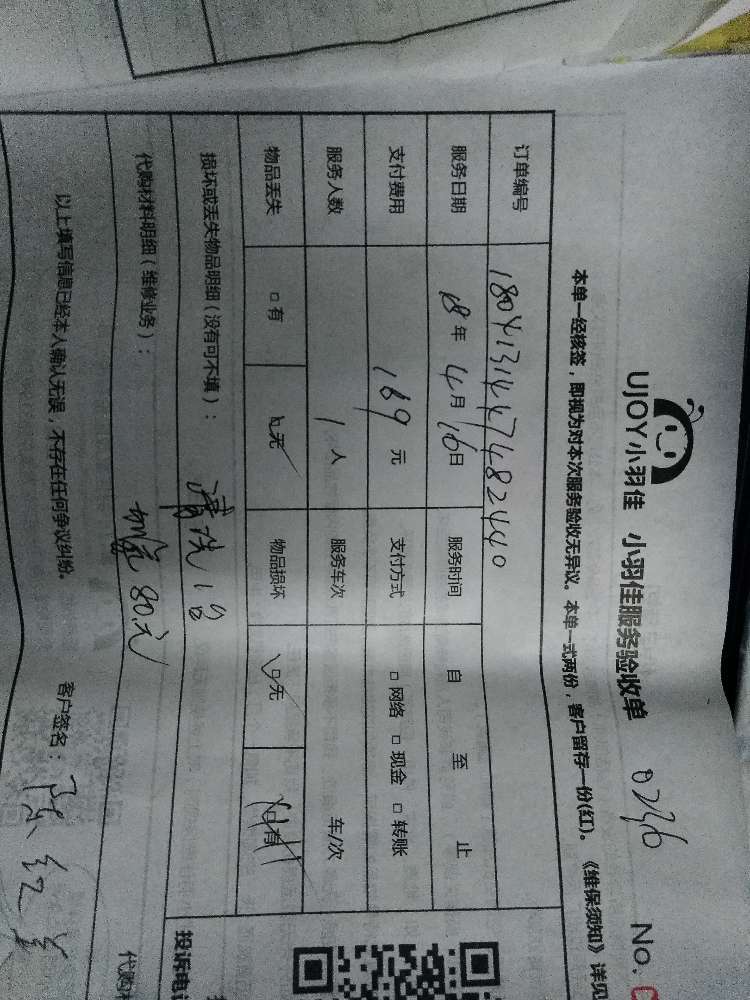 UJOY小羽佳 小羽佳服务验收单 0236 No.
本单一经核签，即视为对本次服务验收无异议。本单一式两份，客户留存一份(红)。《维保须知》详见
订单编号 180413144747482440
服务日期 18年 4月 16日 服务时间 自 至 止
支付费用 169元 支付方式 □网络 □现金 □转账
服务人数 1人 服务车次 车/次
物品丢失 □有 □无 物品损坏 □无 □有
损坏或丢失物品明细（没有可不填）： 清洗1台
代购材料明细（维修业务）： 加氟80元
以上填写信息已经本人确认无误，不存在任何争议纠纷。 客户签名：陈红美
投诉电
代购材